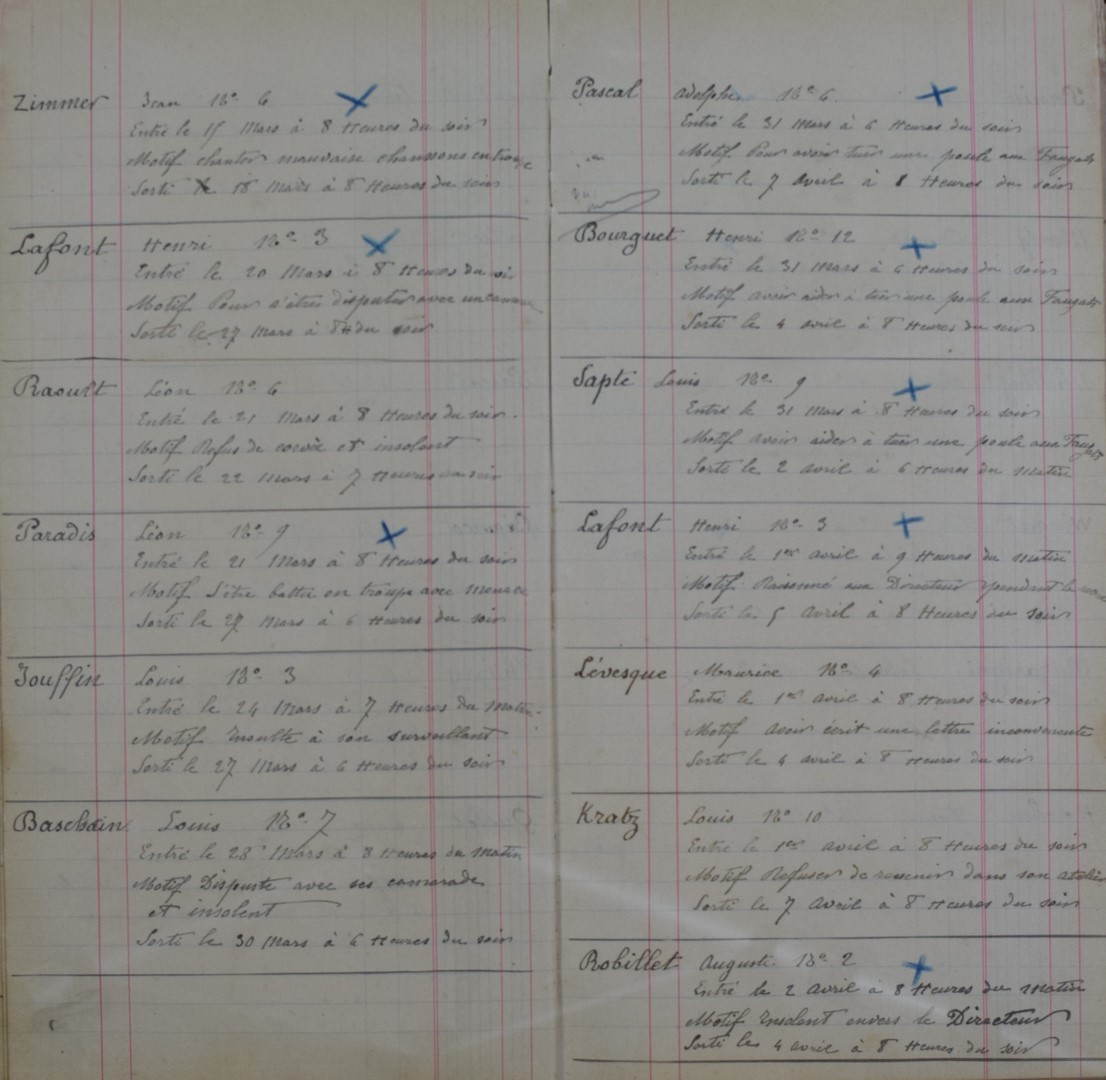 Zimmer Jean No 6
Entré le 15 Mars à 8 Heures du soir
Motif chanter mauvaise chanssons en
Sorti le 18 mars à 8 Heures du soir
Lafont Henri No 3
Entré le 20 Mars à 8 Heures du soir
Motif Pour s'être disputer avec un
Sorti le 27 Mars à 8H du soir
Raoult Léon No 6
Entré le 21 Mars à 8 Heures du soir
Motif Refus de corvée et insolent
Sorti le 22 Mars à 7 Heures du soir
Paradis Léon No 9
Entré le 21 Mars à 8 Heures du soir
Motif S'être battu en troupe avec
Sorti le 27 Mars à 6 Heures du soir
Jouffin Louis No 3
Entré le 24 Mars à 7 Heures du Matin
Motif Insulte à son surveillant
Sorti le 27 Mars à 6 Heures du soir
Baschain Louis No 7
Entré le 28 Mars à 8 Heures du Matin
Motif Dispuste avec ses camarade
et insolent
Sorti le 30 Mars à 6 Heures du soir
Pascal Adolphe No 6
Entré le 31 Mars à 6 Heures du soir
Motif Pour avoir tuer une poule aux Faugats
Sorti le 7 Avril à 8 Heures du soir
Bourguet Henri No 12
Entré le 31 Mars à 6 Heures du soir
Motif avoir aider à tuer une poule aux Faugats
Sorti le 4 avril à 8 Heures du soir
Sapté Louis No 9
Entré le 31 Mars à 8 Heures du soir
Motif avoir aider à tuer une poule aux Faugats
Sorti le 2 avril à 6 Heures du Matin
Lafont Henri No 3
Entré le 1er avril à 9 Heures du Matin
Motif Raisonné aux Directeur pendant
Sorti le 5 avril à 8 Heures du soir
Lévesque Maurice No 4
Entré le 1er avril à 8 Heures du soir
Motif avoir écrit une lettre inconvenante
Sorti le 4 avril à 8 Heures du soir
Kratz Louis No 10
Entré le 1er avril à 8 Heures du soir
Motif Refuser de revenir dans son atelier
Sorti le 7 Avril à 8 Heures du soir
Robillet Auguste No 2
Entré le 2 Avril à 8 Heures du Matin
Motif Insolent envers le Directeur
Sorti le 4 avril à 8 Heures du soir